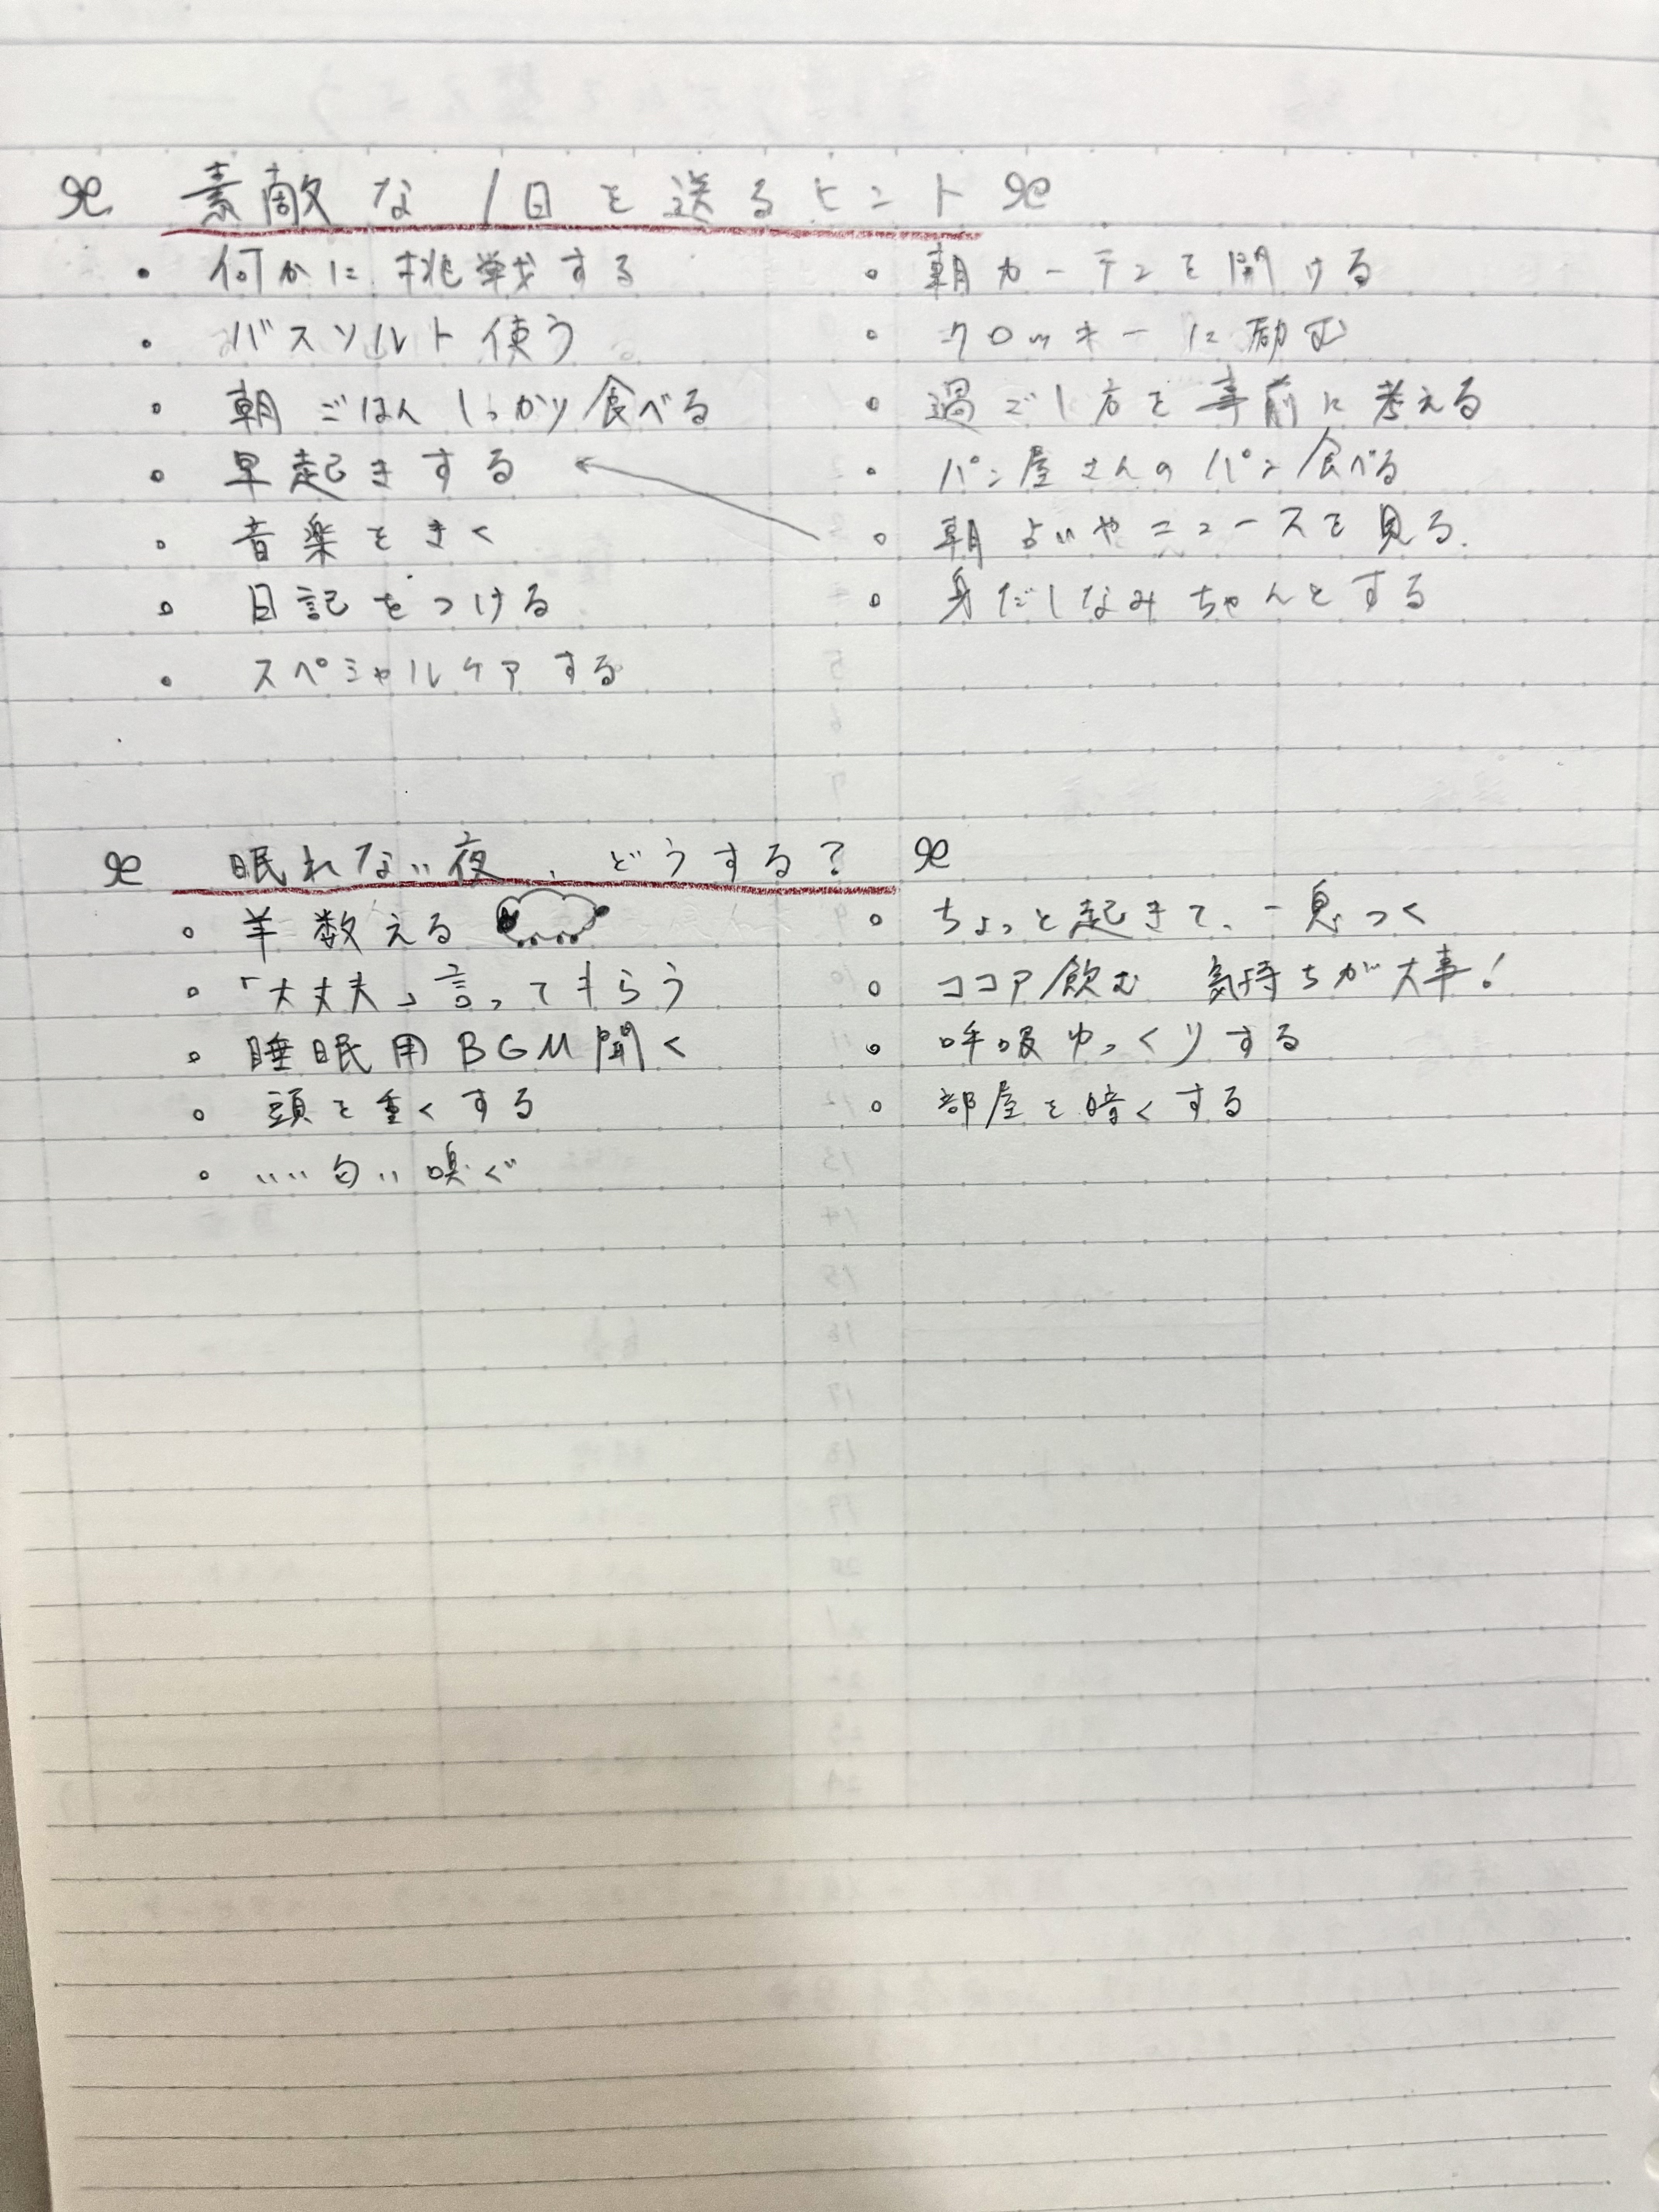 素敵な1日を送るヒント
・何かに挑戦する
・バスソルト使う
・朝ごはんしっかり食べる
・早起きする
・音楽をきく
・日記をつける
・スペシャルケアする
・朝カーテンを開ける
・クロッキーに励む
・過ごし方を事前に考える
・パン屋さんのパン食べる
・朝占いやニュースを見る.
・身だしなみちゃんとする
眠れない夜、どうする?
・羊数える
・「大丈夫」言ってもらう
・睡眠用BGM聞く
・頭を重くする
・いい匂い嗅ぐ
・ちょっと起きて、一息つく
・ココア飲む 気持ちが大事!
・呼吸ゆっくりする
・部屋を暗くする